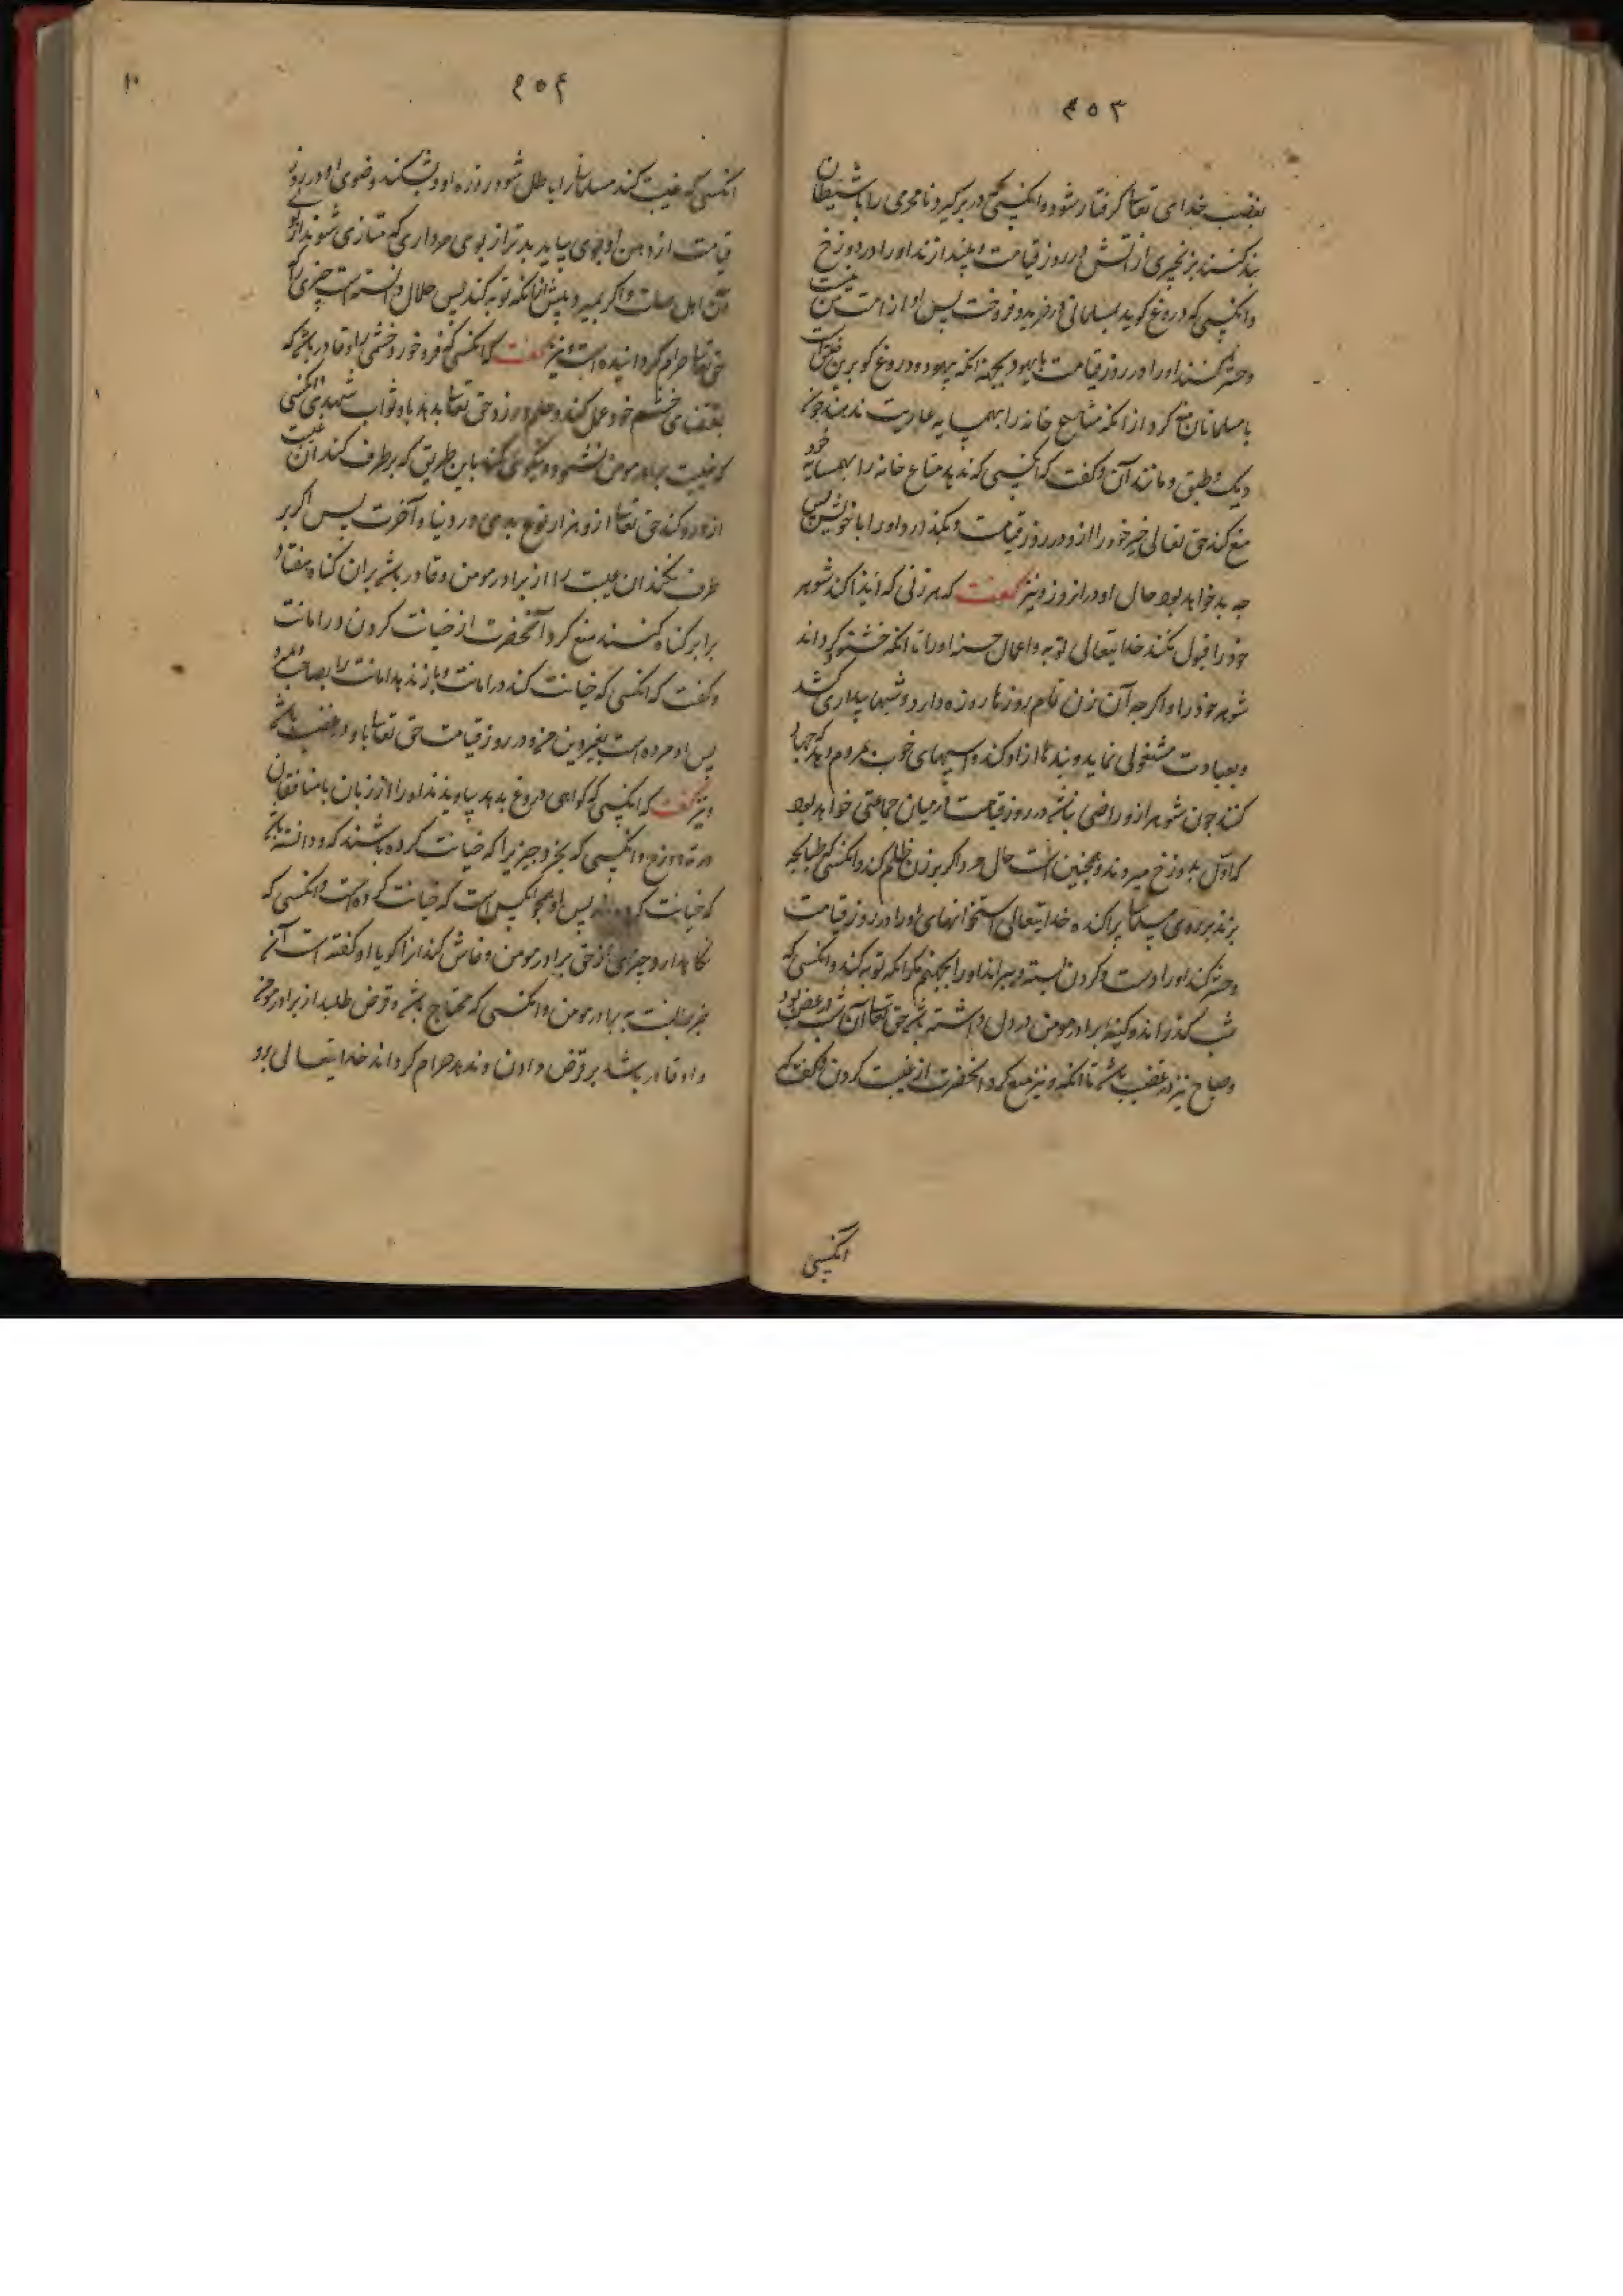 ۴۵۳
بغضب خدای تعالی گرفتار شود و انکسی که در برگیرد نامحرمی را با شیطان
بند کنند بزنجیری از آتش در روز قیامت و بیندازند او را در دوزخ
و انکسی که دروغ گوید بمسلمانی در خرید و فروخت پس او از امت من نیست
و حشر کنند او را در روز قیامت با یهود بجهة انکه یهود دروغ کو ترین خلق است
با مسلمانان منع کرد از انکه متاع خانه را بهمسایه عاریت ندهند چون
دیک و طبق و مانند آن و گفت که انکسی که ندهد متاع خانه را بهمسایه خود
منع کند حق تعالی خیر خود را از و در روز قیامت و بگذارد او را با خودش پس
چه بد خواهد بود حال او در انروز و نیز گفت که هر زنی که ایذا کند شوهر
خود را قبول نکند خدایتعالی توبه و اعمال حسنه او را تا انکه خشنود کرداند
شوهر خود را و اکر چه آن زن تمام روزها روزه دارد و شبها بیداری کشد
و بعبادت مشغولی نماید و بندها ازاد کند و اسپهای خوب بمردم دهد که جهاد
کنند چون شوهر ازو راضی نباشد در روز قیامت در میان جماعتی خواهد بود
که اول بدوزخ میروند و همچنین است حال مرد اکر بر زن ظلم کند و انکسی که طبانچه
بزند بر روی مسلمانی پراکنده خدایتعالی استخوانهای او را در روز قیامت
و حشر کند او را دست و کردن بسته و میبراند او را بجهنم مکر انکه توبه کند و انکسی که
شب گذراند و کینه برادر مومن در دل داشته باشد حق تعالی آن شب در غضب بود
و صباح نیز در غضب باشد تا انکه و نیز منع کرد انحضرت از غیبت کردن و گفت که
انکسی
۴۵۴
۱۰
انکسی که غیبت کند مسلمانی را باطل شود روزه او و بشکند وضوی او و در روز
قیامت از دهن او بوی بیاید بدتر از بوی مرداری که متاذی شوند از بوی
آن اهل و اکر بمیرد پیش از انکه توبه کند پس حلال دانسته است چیزی را که
حق تعالی حرام کردانیده است و نیز گفت که انکسی که فرو خورد خشمی را و قادر باشد که
بمقتضای خشم خود عمل کند و حلم ورزد حق تعالی بدهد باو ثواب شهیدی و انکسی
که غیبت برادر مومن بشنود و نیکوی کند باین طریق که بر طرف کند ان غیبت
از و رد کند حق تعالی ازو هزار نوع بدی در دنیا و آخرت پس اکر بر
طرف نکند ان غیبت را از برادر مومن و قادر باشد بران کناه هفتاد
برابر کناه کنند منع کرد آنحضرت از خیانت کردن در امانت
و گفت که انکسی که خیانت کند در امانت و باز ندهد امانت را بصاحب او
پس او مرده است بغیر دین من و در روز قیامت حق تعالی باو در غضب باشد
و نیز گفت که انکسی که کواهی دروغ بدهد بیاویزند او را از زبان با منافقان
در دوزخ و انکسی که بخرد چیزیرا که خیانت کرده باشند که و دانسته باشد
که خیانت کرده‌اند پس او همچو انکس است که خیانت کرده است و انکسی که
نگاهدارد چیزی از حق برادر مومن و فاش کند انرا کویا او گفته است آن
و انکسی که محتاج باشد و قرض طلبد از برادر مومن
و او قادر باشد بر قرض دادن و ندهد حرام کرداند خدایتعالی برو